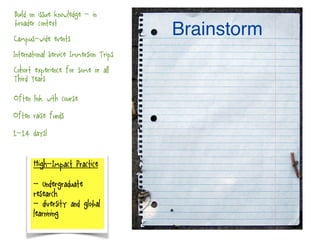 Build on issue knowledge - in
broader context
Campus-wide events
International Service Immersion Trips
Cohort experience for some or all
Third Years
Often link with course
Often raise funds
1-14 days!
High-Impact Practice
- Undergraduate
research
- diversity and global
learning
Brainstorm